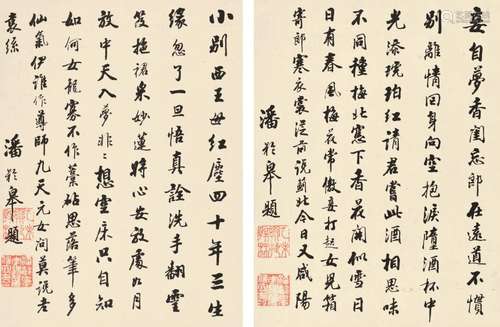 妾自夢香閨忘郎在遠道不慣
別離情回身向空抱淚墮酒杯中
光添琥珀紅請君嘗此酒相思味
不同種梅北窓下香最開似雪日
日有春風梅花常傲妾打起女兒箱
寄郎寒衣裳從前說薊北今日又咸陽
潘齡皋題
小別西王母紅塵四十年三生
緣忽了一旦悟真詮洗手翻雲
笈拖裙采妙蓮將心安放處如月
放中天入夢非非想雲床只自知
如何女龍寡不作藁砧思落筆多
仙氣伊誰作尊師九天元女問莫說老
袁絲
潘齡皋題